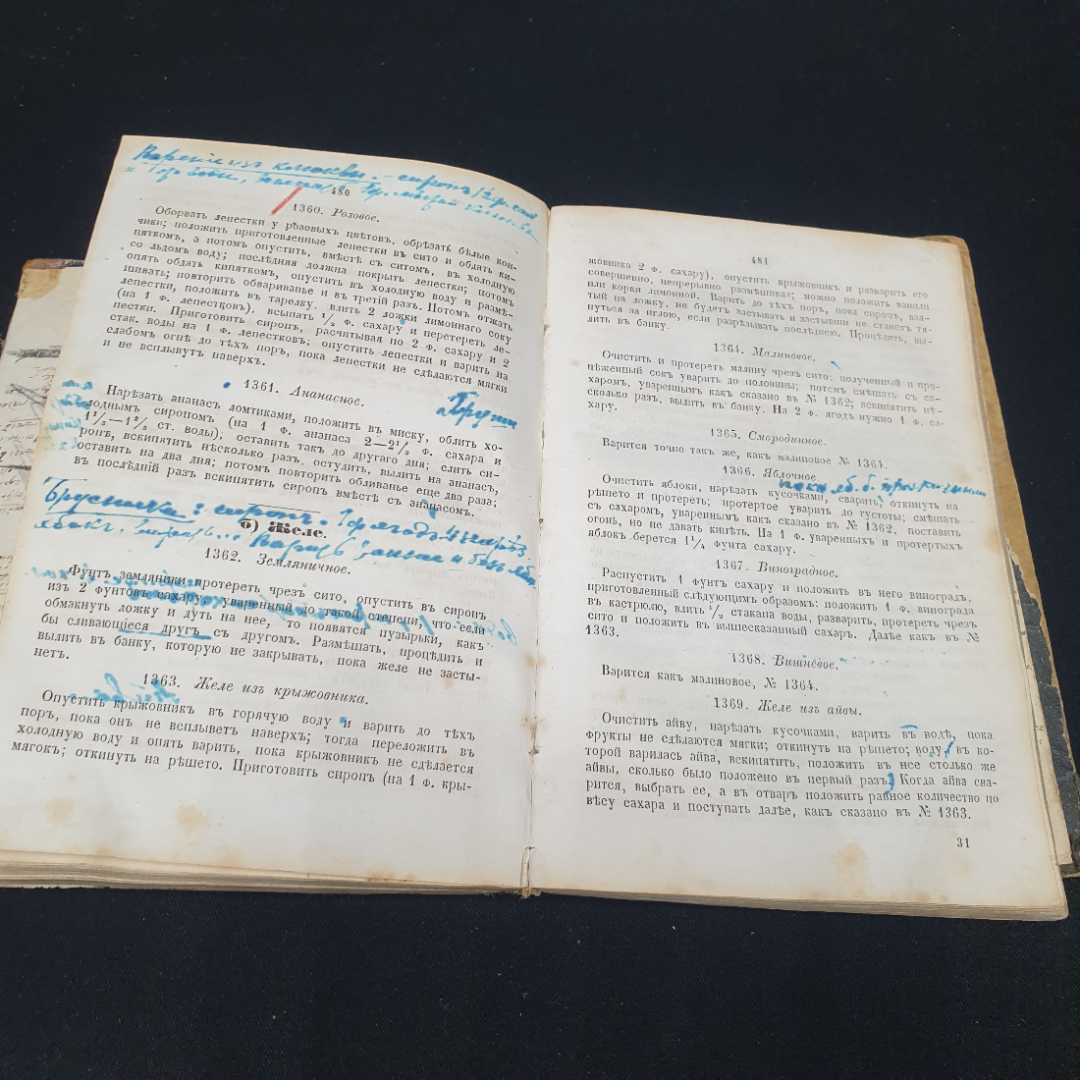 Варенiе из клюквы. - сиропъ
480
1360. Розовое.
Оборвать лепестки у розовыхъ цвѣтовъ, обрѣзать бѣлые кон-
чики; положить приготовленные лепестки въ сито и обдать ки-
пяткомъ, а потомъ опустить, вмѣстѣ съ ситомъ, въ холодную
со льдомъ воду; послѣдняя должна покрыть лепестки; потомъ
опять обдать кипяткомъ, опустить въ холодную воду и размѣ-
шивать; повторить обвариванье и въ третій разъ. Потомъ отжать
лепестки, положить въ тарелку, влить 2 ложки лимоннаго соку
(на 1 ф. лепестковъ), всыпать 1/2 ф. сахару и перетереть ле-
пестки. Приготовить сиропъ, расчитывая по 2 ф. сахару и 2
стак. воды на 1 ф. лепестковъ; опустить лепестки и варить на
слабомъ огнѣ до тѣхъ поръ, пока лепестки не сдѣлаются мягки
и не всплывутъ наверхъ.
1361. Ананасное.
Нарѣзать ананасъ ломтиками, положить въ миску, облить хо-
лоднымъ сиропомъ (на 1 ф. ананаса 2—2 1/2 ф. сахара и
1 1/2—1 1/2 ст. воды), оставить такъ до другаго дня; слить си-
ропъ, вскипятить нѣсколько разъ, остудить, вылить на ананасъ,
оставить на два дня; потомъ повторить обливанье еще два раза;
въ послѣдній разъ вскипятить сиропъ вмѣстѣ съ ананасомъ.
Брусника: сиропъ.
б) Желе.
1362. Земляничное.
Фунтъ земляники протереть чрезъ сито, опустить въ сиропъ
изъ 2 фунтовъ сахару, уваренный до такой степени, что если
обмакнуть ложку и дуть на нее, то появятся пузырьки, какъ
бы сливающіеся другъ съ другомъ. Размѣшать, процѣдить и
вылить въ банку, которую не закрывать, пока желе не засты-
нетъ.
1363. Желе изъ крыжовника.
Опустить крыжовникъ въ горячую воду и варить до тѣхъ
поръ, пока онъ не всплыветъ наверхъ; тогда переложить въ
холодную воду и опять варить, пока крыжовникъ не сдѣлается
мягокъ; откинуть на рѣшето. Приготовить сиропъ (на 1 ф. кры-
481
жовника 2 ф. сахару), опустить крыжовникъ и разварить его
совершенно, непрерывно размѣшивая; можно положить ванили
или корки лимонной. Варить до тѣхъ поръ, пока сиропъ, взя-
тый на ложку, не будетъ застывать и застывши не станетъ тя-
нуться за иглою, если разрѣзывать послѣднею. Процѣдить, вы-
лить въ банку.
1364. Малиновое.
Очистить и протереть малину чрезъ сито; полученный и про-
цѣженный сокъ уварить до половины; потомъ смѣшать съ са-
харомъ, увареннымъ какъ сказано въ № 1362; вскипятить нѣ-
сколько разъ, вылить въ банку. На 2 ф. ягодъ нужно 1 ф. са-
хару.
1365. Смородинное.
Варится точно такъ же, какъ малиновое № 1364.
1366. Яблочное.
Очистить яблоки, нарѣзать кусочками, сварить, откинуть на
рѣшето и протереть; протертое уварить до густоты; смѣшать
съ сахаромъ, увареннымъ какъ сказано въ № 1362, поставить
огонь, но не давать кипѣть. На 1 ф. уваренныхъ и протертыхъ
яблокъ берется 1 1/4 фунта сахару.
1367. Виноградное.
Распустить 1 фунтъ сахару и положить въ него виноградъ,
приготовленный слѣдующимъ образомъ: положить 1 ф. винограда
въ кастрюлю, влить 1/2 стакана воды, разварить, протереть чрезъ
сито и положить въ вышесказанный сахаръ. Далее какъ въ №
1363.
1368. Вишневое.
Варится какъ малиновое, № 1364.
1369. Желе изъ айвы.
Очистить айву, нарѣзать кусочками, варить въ водѣ, пока
фрукты не сдѣлаются мягки; откинуть на рѣшето; воду, въ ко-
торой варилась айва, вскипятить, положить въ нее столько же
айвы, сколько было положено въ первый разъ. Когда айва сва-
рится, выбрать ее, а въ отваръ положить равное количество по
вѣсу сахара и поступать далѣе, какъ сказано въ № 1363.
31